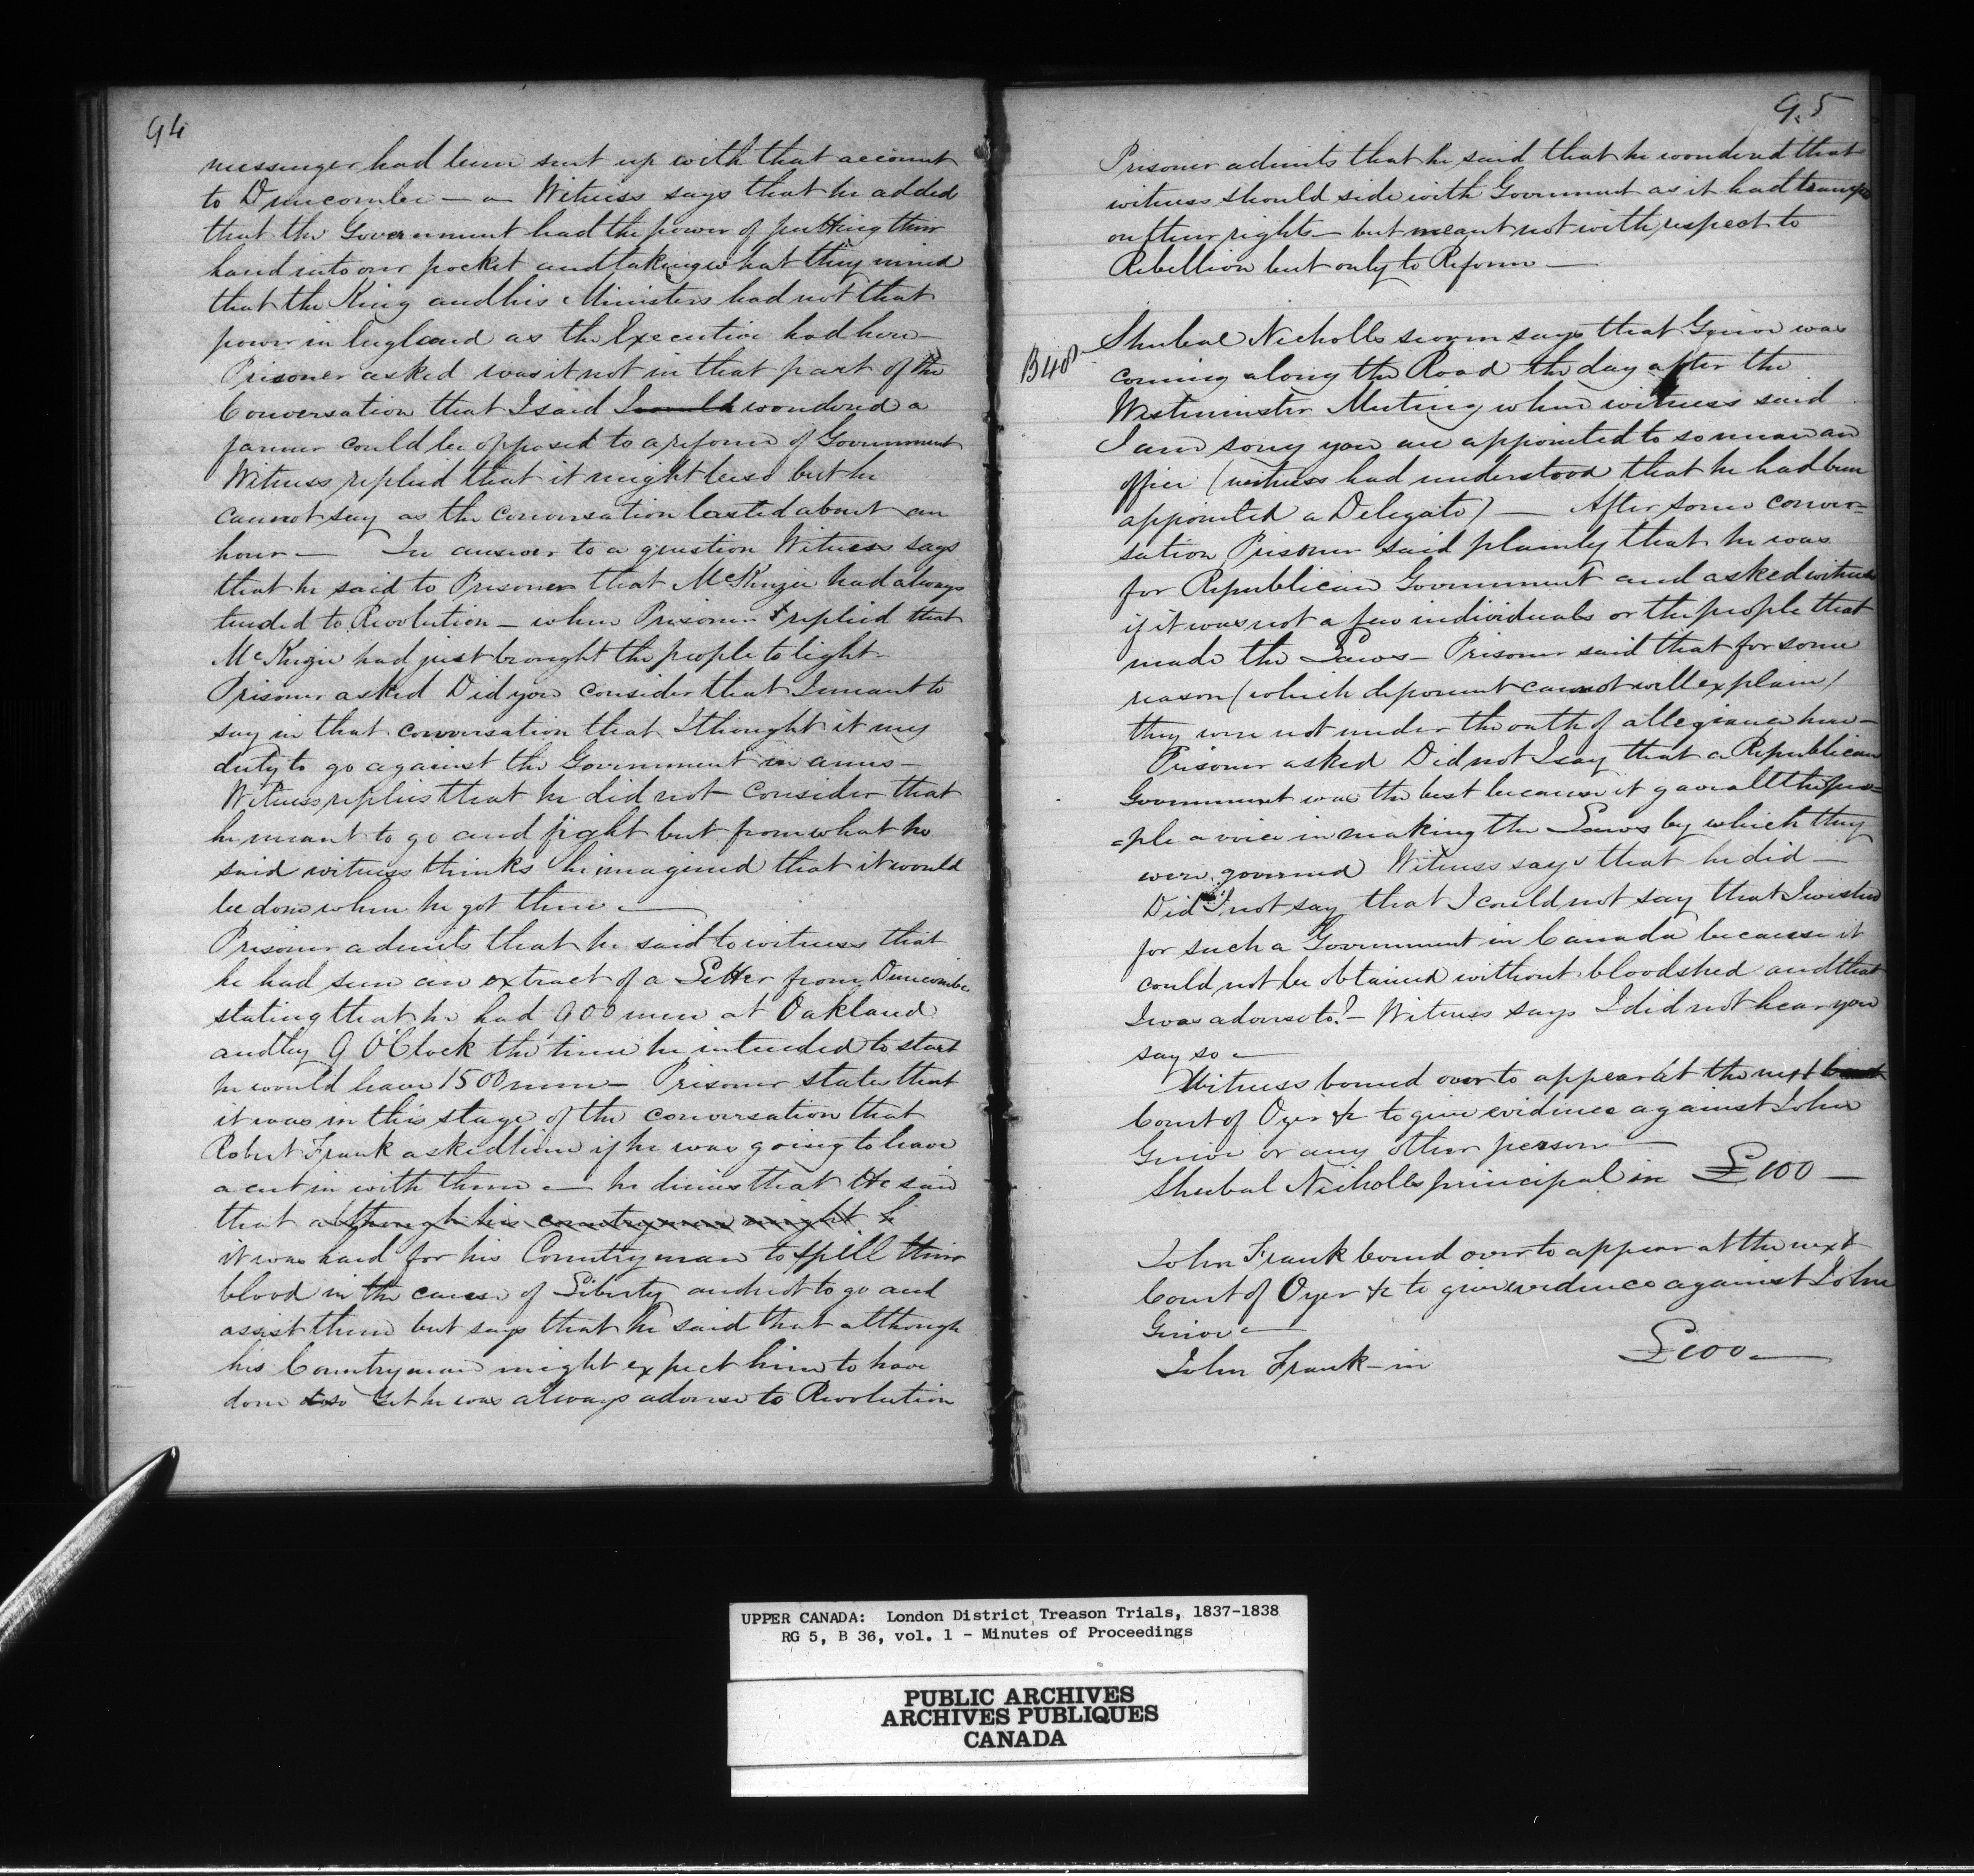 94
messenger had been sent up with that account
to Duncombe — a Witness says that he added
that the Government had the power of putting their
hand into our pocket and taking what they mind
that the King and his Ministers had not that
power in England as the Executive had here —
Prisoner asked was it not in that part of the
Conversation that I said I would wondered a
farmer could be opposed to a reform of Government
Witness replied that it might be so but he
cannot say as the conversation lasted about an
hour — In answer to a question Witness says
that he said to Prisoner that McKenzie had always
tended to Revolution — when Prisoner replied that
McKenzie had just brought the people to light —
Prisoner asked Did you consider that I meant to
say in that conversation that I thought it my
duty to go against the Government in arms —
Witness replies that he did not consider that
he meant to go and fight but from what he
said witness thinks he imagined that it would
be done when he got there —
Prisoner admits that he said to witness that
he had seen an extract of a Letter from Duncombe
stating that he had 900 men at Oakland
and by 9 O'Clock the time he intended to start
he would have 1500 men — Prisoner states that
it was in this stage of the conversation that
Robert Frank asked him if he was going to have
a cut in with them — he denies that He said
that although his countrymen might h
it was hard for his Countryman to spill their
blood in the cause of Liberty and not to go and
assist them but says that he said that although
his Countrymen might expect him to have
done so yet he was always adverse to Revolution
95
Prisoner admits that he said that he wondered that
witness should side with Government as it had
on their rights — but meant not with respect to
Rebellion but only to Reform —
B40
Shubal Nicholls sworn says that Grieve was
coming along the Road the day after the
Westminster Meeting when witness said
I am sorry you are appointed to so mean an
office (witness had understood that he had been
appointed a Delegate) — After some conver=
sation Prisoner said plainly that he was
for Republican Government and asked witness
if it was not a few individuals or the people that
made the Laws — Prisoner said that for some
reason (which deponent cannot well explain)
they were not under the oath of allegiance here —
Prisoner asked Did not I say that a Republican
Government was the best because it gave all the peo=
=ple a voice in making the Laws by which they
were governed Witness says that he did —
Did I not say that I could not say that I wished
for such a Government in Canada because it
could not be obtained without bloodshed and that
I was adverse to? — Witness says I did not hear you
say so —
Witness bound over to appear at the next
Court of Oyer &c to give evidence against John
Grieve or any other person —
Shubal Nicholls principal in £100 —
John Frank bound over to appear at the next
Court of Oyer &c to give evidence against John
Grieve —
John Frank — in £100 —
UPPER CANADA: London District Treason Trials, 1837-1838
RG 5, B 36, vol. 1 - Minutes of Proceedings
PUBLIC ARCHIVES
ARCHIVES PUBLIQUES
CANADA